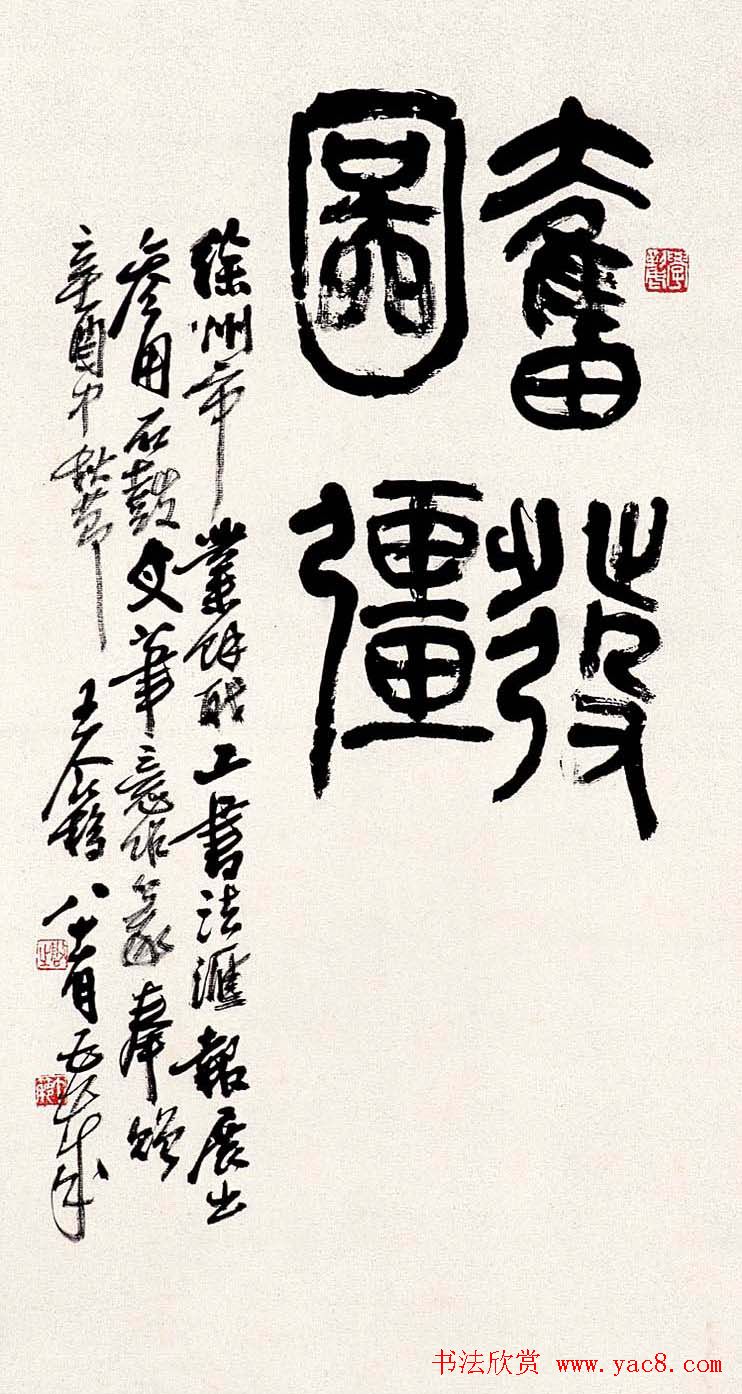 奮發
圖彊
徐州市業餘職工書法滙報展出
參用石鼓文筆意作篆奉贈
辛酉中秋節 王个簃 八十有五
书法欣赏 www.yac8.com